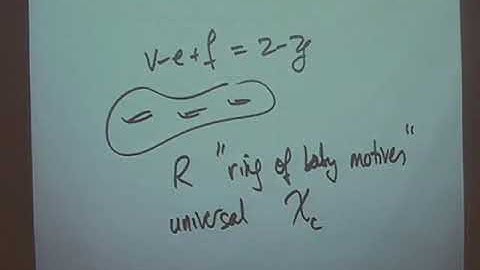 v-e+f = 2-2g
R "ring of baby motives"
universal χ_c